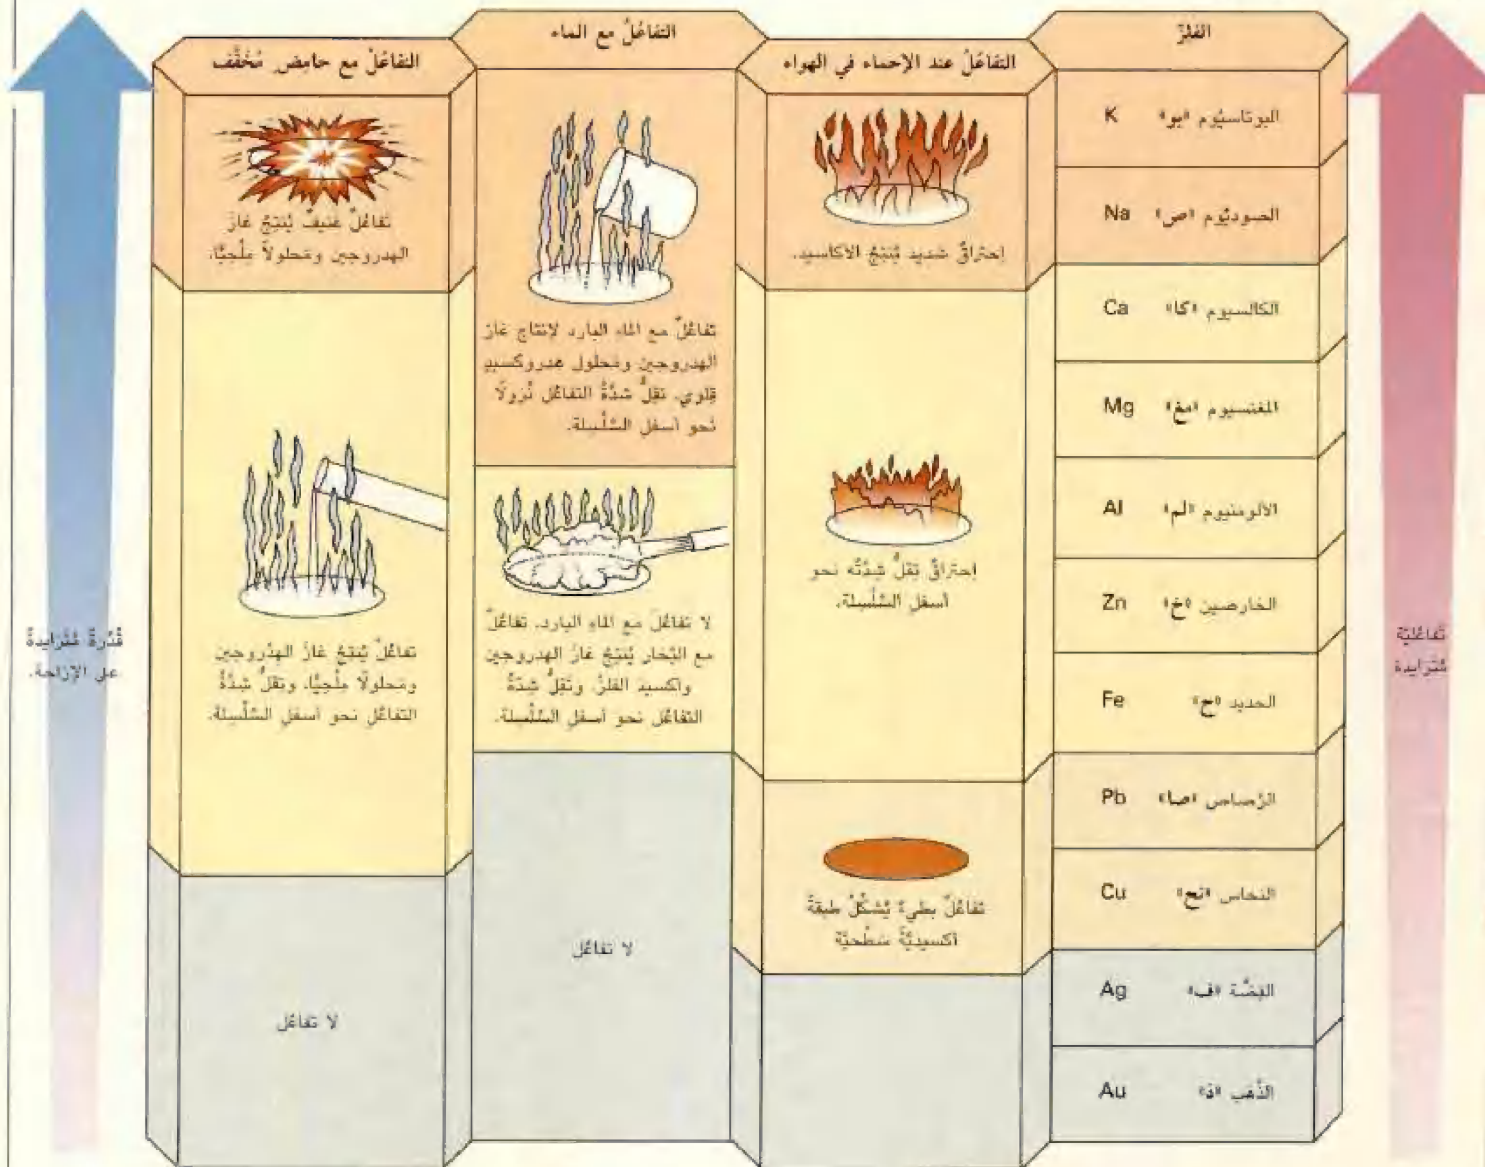 الفلزّ
البوتاسيُوم «بو» K
الصوديُوم «ص» Na
الكالسيوم «كا» Ca
المغنسيوم «مغ» Mg
الألومنيوم «لم» Al
الخارصين «خ» Zn
الحديد «ح» Fe
الرَّصاص «صا» Pb
النحاس «نح» Cu
الفِضَّة «ف» Ag
الذَّهَب «ذ» Au
التفاعُلُ عند الإحماء في الهواء
إحتراقٌ شديد يُنتِجُ الأكاسيد.
إحتراقٌ تقِلُّ شِدَّتُه نحو
أسفل السِّلْسِلة.
تفاعُلٌ بطيءٌ يُشكِّلُ طبقةً
أكسيديَّةً سَطْحيَّة
التفاعُلُ مع الماء
تفاعُلٌ مع الماء البارد لإنتاج غاز
الهدروجين ومَحلول هدروكسيدٍ
قِلوي. تقِلُّ شدَّةُ التفاعُل نُزولًا
نحو أسفل السِّلْسِلة.
لا تفاعُلَ مع الماء البارد. تفاعُلٌ
مع البُخار يُنتِجُ غازَ الهدروجين
وأكسيد الفلزّ. وتقِلُّ شِدَّةُ
التفاعُل نحو أسفل السِّلْسِلة.
لا تفاعُل
التفاعُلُ مع حامِضٍ مُخَفَّف
تفاعُلٌ عَنيفٌ يُنتِجُ غازَ
الهدروجين ومَحلولاً مِلْحِيًّا.
تفاعُلٌ يُنتِجُ غازَ الهدروجين
ومَحلولًا مِلْحِيًّا. وتقلُّ شِدَّةُ
التفاعُل نحو أسفل السِّلْسِلة.
لا تفاعُل
تَفاعُليّة
مُتَزايدة
قُدْرةٌ مُتَزايدةٌ
على الإزاحة.